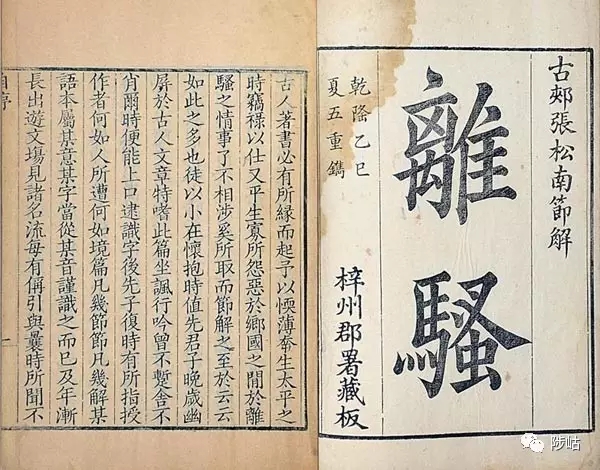 古郟張松南節解
離騷
乾隆乙巳
夏五重鐫
梓州郡署藏板
古人著書必有所緣而起予以愞薄奉生太平之
時竊祿以仕又平生寡所怨惡於鄉國之閒於離
騷之情事了不相涉奚所取而節解之至於云云
如此之多也徒以小在懷抱時值先君子晚歲幽
屏於古人文章特嗜此篇坐諷行吟曾不蹔舍不
肖爾時便能上口逮識字後先子復時有所指授
作者何如人所遭何如境篇凡幾節節凡幾解某
語本屬某意某字當從某音謹識之而已及年漸
長出遊文場見諸名流每有偁引與曩時所聞不
一
陟岵